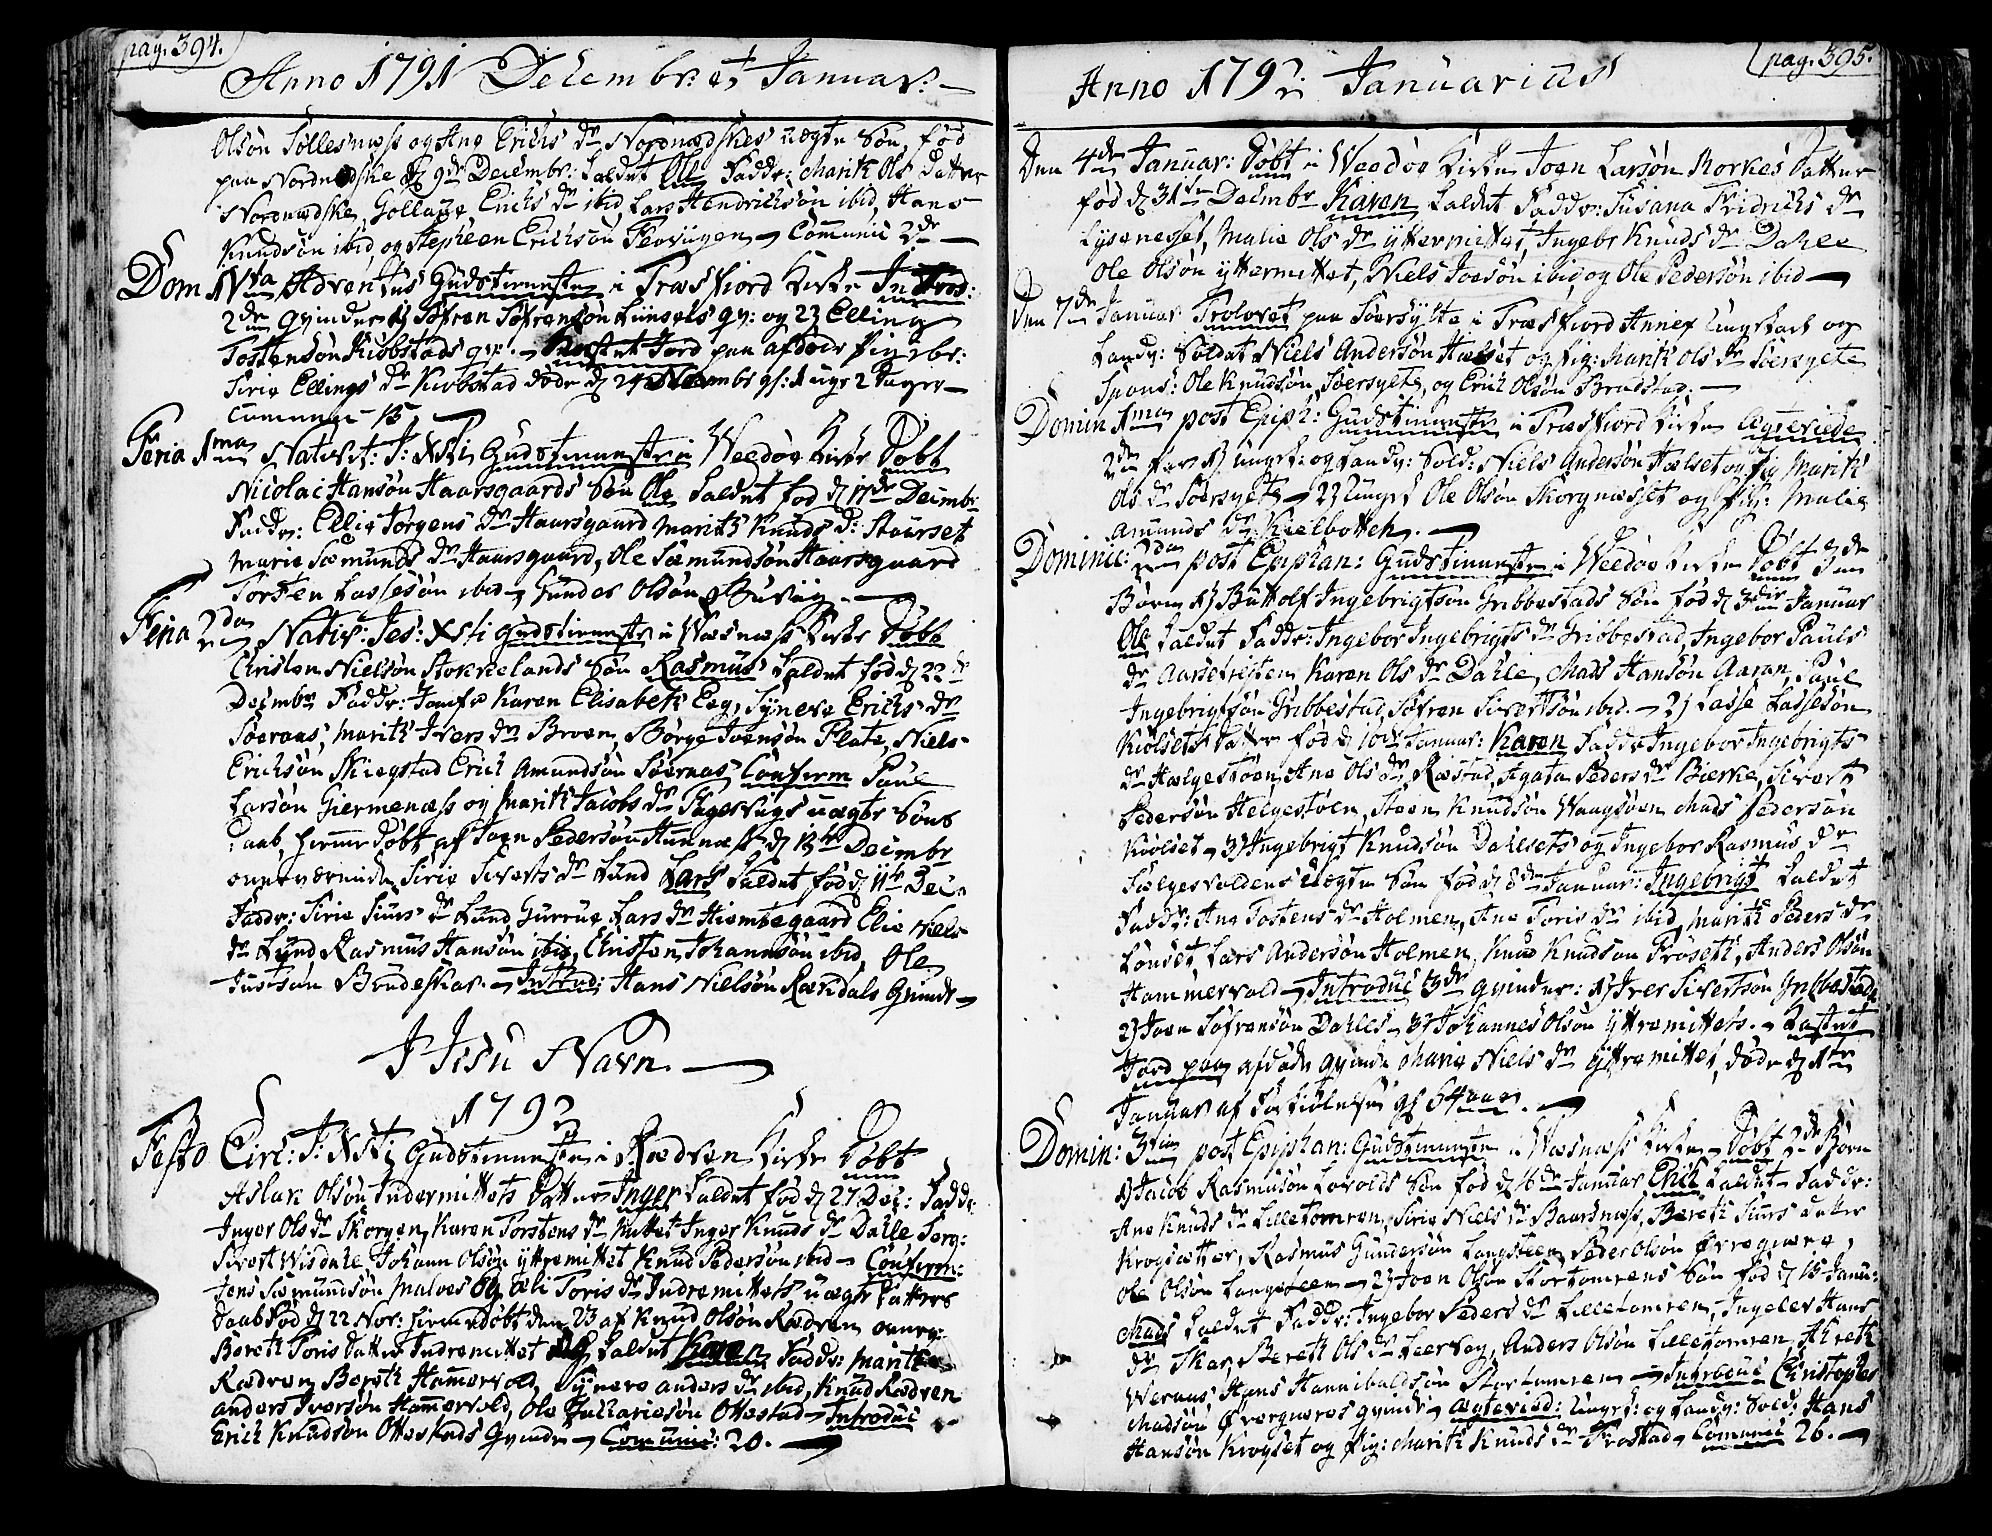 pag. 394.
Anno 1791 Decembr: et Januar:
Olsøn Sollesnæss og Ane Erichs dr Nordnedskes uægte Søn, fød
paa Nordnedske d 9de Decembr: kaldet Ole Faddr: Marith Ols Datter
Nordnedske, Gollaug Erichs dr ibid, Lars Hendrichsøn ibid, Hans
Knudsøn ibid, og Stepheen Erichsøn - Communic 2de
Dom IVta Adventus Gudstieneste i Træsfiord Kirke Introd:
2de qvinder 1) Søfren Søfrensøn Lunsets qv: og 2) Elling
Tostensøn Kiøbstads qv: - Kastet Jord paa afdøde Pigebr:
Siri Ellings dr Kiøbstad døde d 24 Novembr gl: 1 uge 2 Dage
Communic 15
Feria 1ma Nativit: J: Xsti Gudstieneste i Weedøe Kirke Døbt
Nicolai Hansøn Haarsgaards Søn Ole kaldet fød d 17de Decembr
Faddr: Elli Jørgens dr Haarsgaard Marith Knuds dr Staurset
Marie Sæmunds dr Haarsgaard, Ole Sæmundsøn Haarsgaard
Torsten Lassesøn ibid, Gunder Olsøn Buviig.
Feria 2da Nativ: Jes: Xsti Gudstieneste i Næsnæss Kirke Døbt
Christen Nielsøn Stokkelands Søn Rasmus kaldet fød d 22de
Decembr Faddr: Jomfr Karen Elisabeth Eeg, Synneve Erichs dr
Søeraas, Marith Ivers dr Broen, Børge Ivensøn Flate, Niels
Erichsøn Skiegstad Erich Amundsøn Søeraas, Confirm Poul
Larsøn Giermenæss og Marith Jacobs dr Fagervigs uægte Søns
Daab, hiemmedøbt af Joen Pedersøn Hunnæss d 13de Decembr
overværende Siri Siverts dr Lund Lars kaldet fød d 11te Dec
Faddr: Siri Siurs dr Lund, Gurrue Lars dr Hiemtegaard Elie Niels
dr Lund Rasmus Hansøn ibid, Christen Johannsøn ibid, Ole
Justsøn Brudeskar. - Introd: Hans Nielsøn Rækdals Qvinde
I Jesu Navn
1792
Festo Circ: J: Xsti Gudstieneste i Rødven Kirke Døbt
Aslak Olsøn Indermittets Datter Inger kaldet fød d 27 Dec: Faddr
Inger Ols dr Skorgen, Karen Torstens dr Mittet Inger Knuds dr Dahle Serg:
Sivert Wisdahl, Johann Olsøn Yttremittet Knud Pedersøn ibid - Confirm:
Jens Sæmundsøn Malnes og Eli Toris dr Indremittets uægte Datters
Daab fød d 22 Nov: hiemmedøbt den 23 af Knud Olsøn Rødven overv:
Bereth Toris datter Indremittet kaldet Karen Faddr: Marith
Rødven Bereth Hammervold, Synneve Anders dr ibid, Knud Rødven
Anders Iversøn Hammervold, Ole Zachariesøn Ottestad - Introduc
Erich Knudsøn Ottestads Qvinde - Communic: 20.
pag. 395.
Anno 1792 Januarius
Den 4de Januar: Døbt i Weedøe Kirke Joen Larsøn Borkes Datter
fød d 31te Decembr Karen kaldet Faddr: Susana Fridrichs dr
Lysenesset, Malie Ols dr Yttermittet, Ingebr Knuds dr Dahle
Ole Olsøn Yttermittet, Niels Joesøn ibid og Ole Pedersøn ibid
Den 7de Januar Trolovet paa Søersylte i Træsfiord Annex Ungkarl og
Landv: Soldat Niels Andersøn Hælset og Pig: Marith Ols dr Søersylte
Spons: Ole Knudsøn Søersylte, og Erich Olsøn Brudstad.
Domin 1ma post Epiph: Gudstieneste i Træsfiord Kirke Ægteviede
2de Par 1) Ungk: og Landv: Sold: Niels Andersøn Hælset og Pig Marith
Ols dr Søersylte - 2) Ungk: Ole Olsøn Skorgnæsset og Pig: Malie
Amunds dr Kielbotten.
Dominic: 2da post Epiphan: Gudstieneste i Weedøe Kirke Døbt 3de
Børn 1) Buttolf Ingebrigtsøn Gribbestads Søn fød d 3die Januar
Ole kaldet Faddr: Ingebor Ingebrigts dr Gribbestad, Ingebor Pauls
dr Aarsetresten Karen Ols dr Dahle, Mads Hansøn Aaran, Paul
Ingebrigtsøn Gribbestad, Søfren Sivertsøn ibid. - 2) Lasse Lassesøn
Kiølsets Datter fød d 10de Januar: Karen Faddr Ingebor Ingebrigts
dr Hælgestøen, Ane Ols dr Ræstad, Agata Peders dr Bierke, Sivert
Pedersøn Helgestøen, Steen Knudsøn Waagsøen Mads Pedersøn
Kiølset - 3) Ingebrigt Knudsøn Dahlsets og Ingebor Rasmus dr
Sælgesvoldens uægte Søn fød d 8de Januar: Ingebrigt kaldet
Faddr: Ane Tostens dr Holmen, Ane Toris dr ibid, Marith Peders dr
Lønset Lars Andersøn Holmen, Knud Knudsøn Frøseth, Anders Olsøn
Hammervold - Introduc 3de Qvinder: 1) Iver Sivertsøn Gribbestads
2) Joen Søfrensøn Dahles - 3) Johannes Olsøn Yttremittets. - Kastet
Jord paa afdøde qvinde Marie Niels dr Yttremittet, døde d 1te
Januar af Forkiølelse gl 64 aar.
Domin: 3tia post Epiphan: Gudstieneste i Næsnæss Kirke - Døbt 2de Børn
1) Jacob Rasmusøn Lovolds Søn fød d 16de Januar Erich kaldet - Faddr:
Ane Knuds dr Lilletomren, Siri Niels dr Baarsnæss, Bereth Siurs datter
Krogsætter, Rasmus Gundersøn Langsteen, Peder Olsøn Øvregvære,
Ole Olsøn Langsteen - 2) Joen Olsøn Stortomrens Søn fød d 15 Janu:
Mads kaldet Faddr: Ingebor Peders dr Lilletomren, Ingeler Hans
dr Skar, Bereth Ols dr Leervog, Anders Olsøn Lilletomren,
Weraas Hans Hannibaldsøn Stortomren - Introduc Christopher
Madsøn Øvregværes qvinde - Ægteviid: Ungk: og Landv: Sold: Hans
Hansøn Krogset og Pig: Marith Knuds dr Frostad - Communic 26.